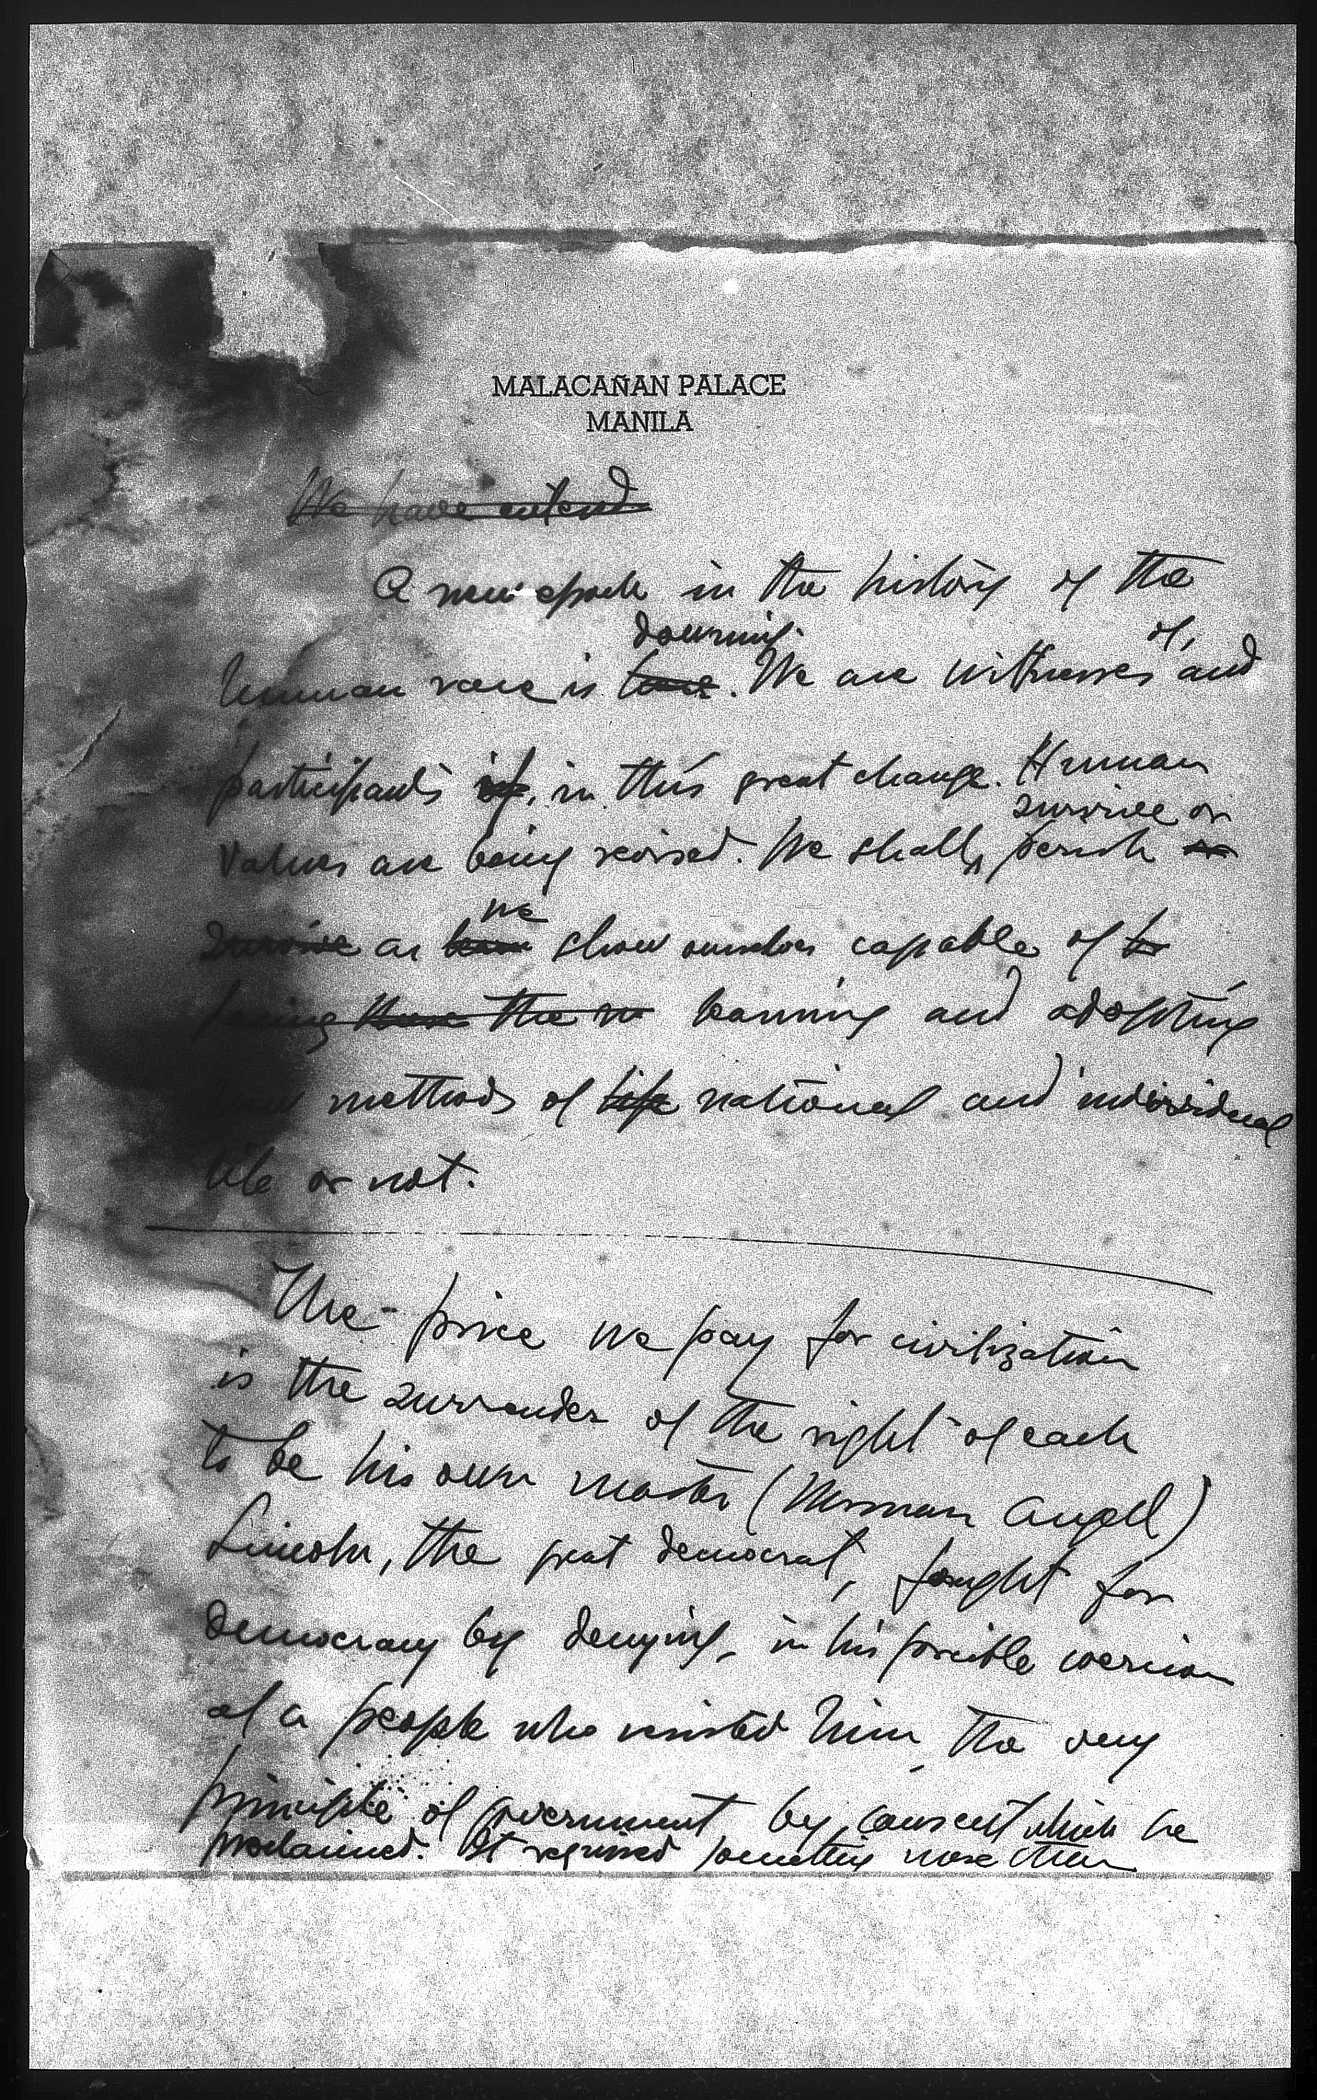 MALACAÑAN PALACE
MANILA
We have entend
A new epoch in the history of the
dawning of,
human race is . We are witnesses and
participants in this great change. Human
survive or
values are being revised. We shall perish or
we
survive as show ourselves capable of to
the learning and adopting
new methods of life national and individual
life or not.
The price we pay for civilization
is the surrender of the right of each
to be his own master (Norman Angell)
Lincoln, the great democrat, fought for
democracy by denying, in his forcible coercion
of a people who resisted him, the very
principle of government by consent which he
proclaimed. It required something more than